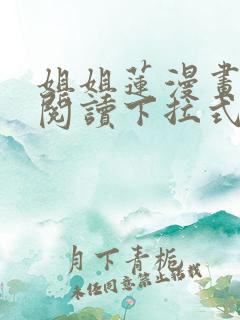 姐姐蓮漫畫
閱讀下拉式
月下青栀
未经同意禁止转载